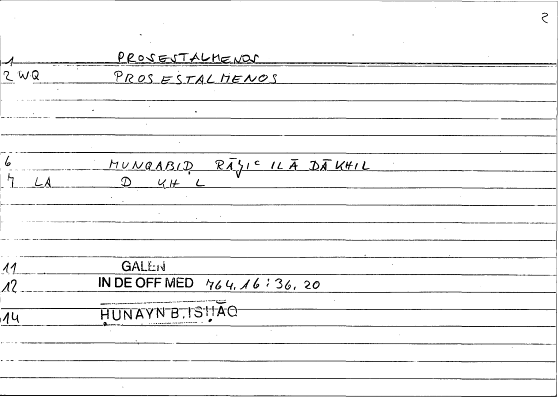 2
1 PROSESTALMENOS
2 WQ PROSESTALMENOS
6 MUNQABIḌ RĀǦIC ILĀ DĀKHIL
7 LA D KH L
11 GALEN
12 IN DE OFF MED 764,16 : 36,20
14 ḤUNAYN B. ISḤĀQ